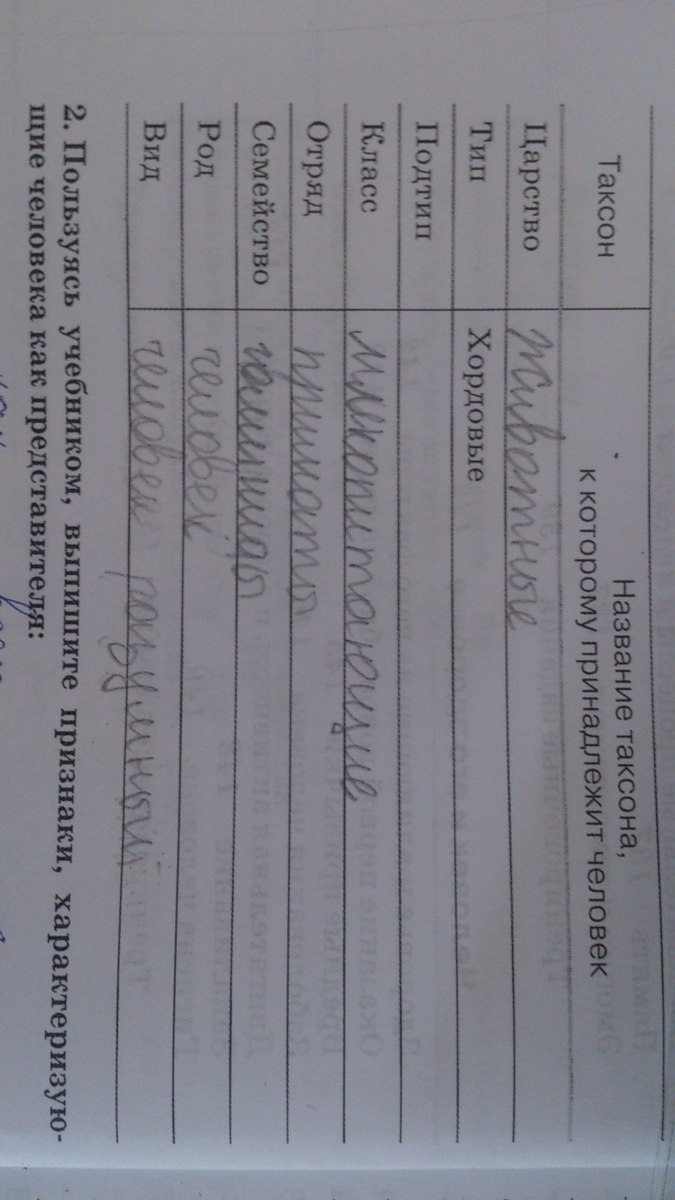 Таксон
Название таксона,
к которому принадлежит человек
Царство животные
Тип Хордовые
Подтип
Класс млекопитающие
Отряд приматы
Семейство гоминиды
Род человек
Вид человек разумный
2. Пользуясь учебником, выпишите признаки, характеризую-
щие человека как представителя: